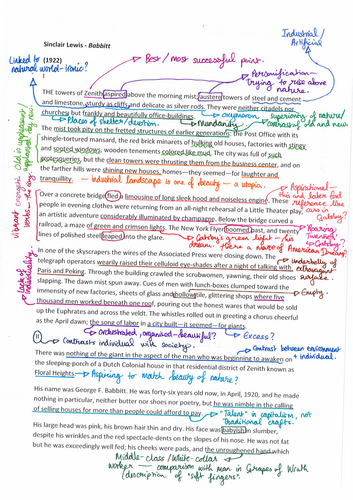 Industrial/
Artificial
Sinclair Lewis - Babbitt
Linked to
natural world - ironic?
(1922)
Best / most successful point.
Personification -
trying to rise above
nature.
THE towers of Zenith aspired above the morning mist; austere towers of steel and cement
and limestone, sturdy as cliffs and delicate as silver rods. They were neither citadels nor
churches, but frankly and beautifully office-buildings.
oxymoron
superiority of nature/
contrast of old and new.
Places of shelter/devotion.
Mundanity
The mist took pity on the fretted structures of earlier generations: the Post Office with its
shingle-tortured mansard, the red brick minarets of hulking old houses, factories with stingy
and sooted windows, wooden tenements colored like mud. The city was full of such
grotesqueries, but the clean towers were thrusting them from the business center, and on
the farther hills were shining new houses, homes—they seemed—for laughter and
tranquillity.
industrial landscape is one of beauty - a utopia.
Aspirational -
Over a concrete bridge fled a limousine of long sleek hood and noiseless engine. These
people in evening clothes were returning from an all-night rehearsal of a Little Theater play,
an artistic adventure considerably illuminated by champagne. Below the bridge curved a
railroad, a maze of green and crimson lights. The New York Flyer boomed past, and twenty
lines of polished steel leaped into the glare.
Gatsby's green light - his
dream. Also a name of American Dream?
Roaring
Gatsby?
In one of the skyscrapers the wires of the Associated Press were closing down. The
telegraph operators wearily raised their celluloid eye-shades after a night of talking with
Paris and Peking. Through the building crawled the scrubwomen, yawning, their old shoes
slapping. The dawn mist spun away. Cues of men with lunch-boxes clumped toward the
immensity of new factories, sheets of glass and hollow tile, glittering shops where five
thousand men worked beneath one roof, pouring out the honest wares that would be sold
up the Euphrates and across the veldt. The whistles rolled out in greeting a chorus cheerful
as the April dawn; the song of labor in a city built—it seemed—for giants.
Underbelly of
extravagant
surface.
Empty
Lack of
individuality.
Orchestrated, organised - beautiful?
Excess?
II
Contrasts individual with society.
Contrast between environment
+ individual.
There was nothing of the giant in the aspect of the man who was beginning to awaken on
the sleeping-porch of a Dutch Colonial house in that residential district of Zenith known as
Floral Heights.
Aspiring to match beauty of nature?
His name was George F. Babbitt. He was forty-six years old now, in April, 1920, and he made
nothing in particular, neither butter nor shoes nor poetry, but he was nimble in the calling
of selling houses for more than people could afford to pay.
"Talent" in capitalism, not
traditional crafts.
His large head was pink, his brown hair thin and dry. His face was babyish in slumber,
despite his wrinkles and the red spectacle-dents on the slopes of his nose. He was not fat
but he was exceedingly well fed; his cheeks were pads, and the unroughened hand which
Middle-class / White-collar
worker - comparison with man in Grapes of Wrath
(description of "soft fingers".